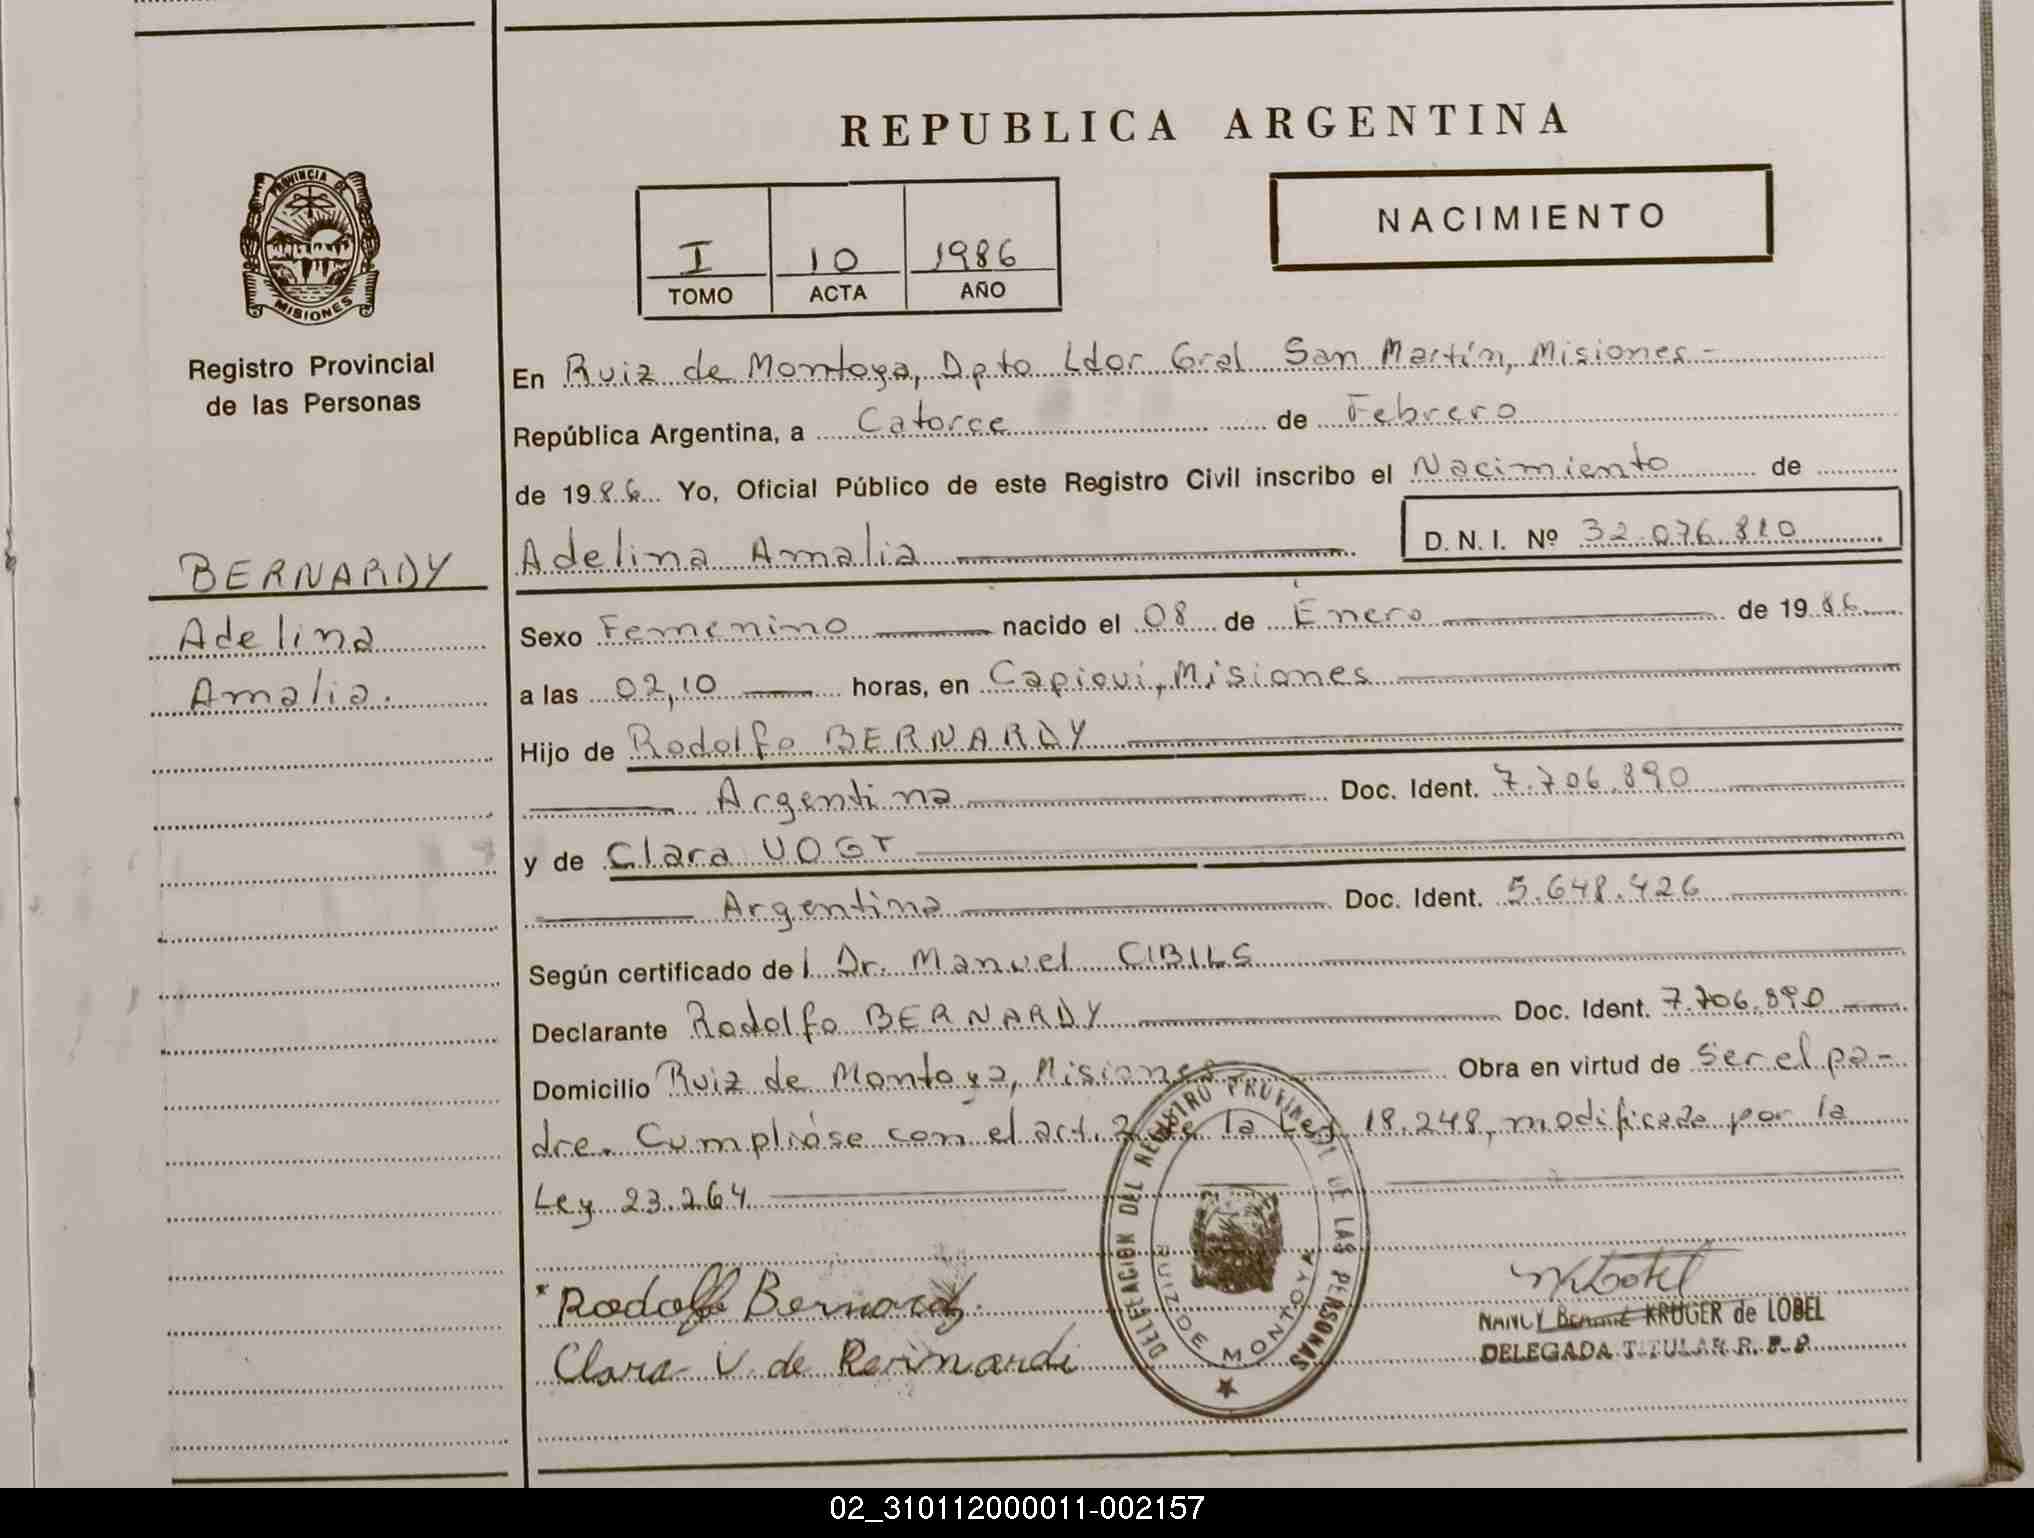 REPUBLICA ARGENTINA
PROVINCIA DE
MISIONES
Registro Provincial
de las Personas
NACIMIENTO
I 10 1986
TOMO ACTA AÑO
En Ruiz de Montoya, Dpto Ldor Gral San Martín, Misiones-
República Argentina, a Catorce de Febrero
de 1986 Yo, Oficial Público de este Registro Civil inscribo el Nacimiento de
Adelina Amalia
D. N. I. Nº 32.076.810
BERNARDY
Adelina
Amalia.
Sexo Femenino nacido el 08 de Enero de 1986
a las 02,10 horas, en Capioví, Misiones
Hijo de Rodolfo BERNARDY
Argentina Doc. Ident. 7.706.890
y de Clara VOGT
Argentina Doc. Ident. 5.648.426
Según certificado del Dr. Manuel CIBILS
Declarante Rodolfo BERNARDY Doc. Ident. 7.706.890
Domicilio Ruiz de Montoya, Misiones Obra en virtud de Ser el pa-
dre. Cumplióse con el art. 2 de la Ley 18.248, modificada por la
Ley 23.264.
DELEGACION DEL REGISTRO PROVINCIAL DE LAS PERSONAS
RUIZ DE MONTOYA
Rodolfo Bernardy.
Clara V. de Bernardi
NANCY KRUGER de LOBEL
DELEGADA TITULAR R. P. P.
02_310112000011-002157